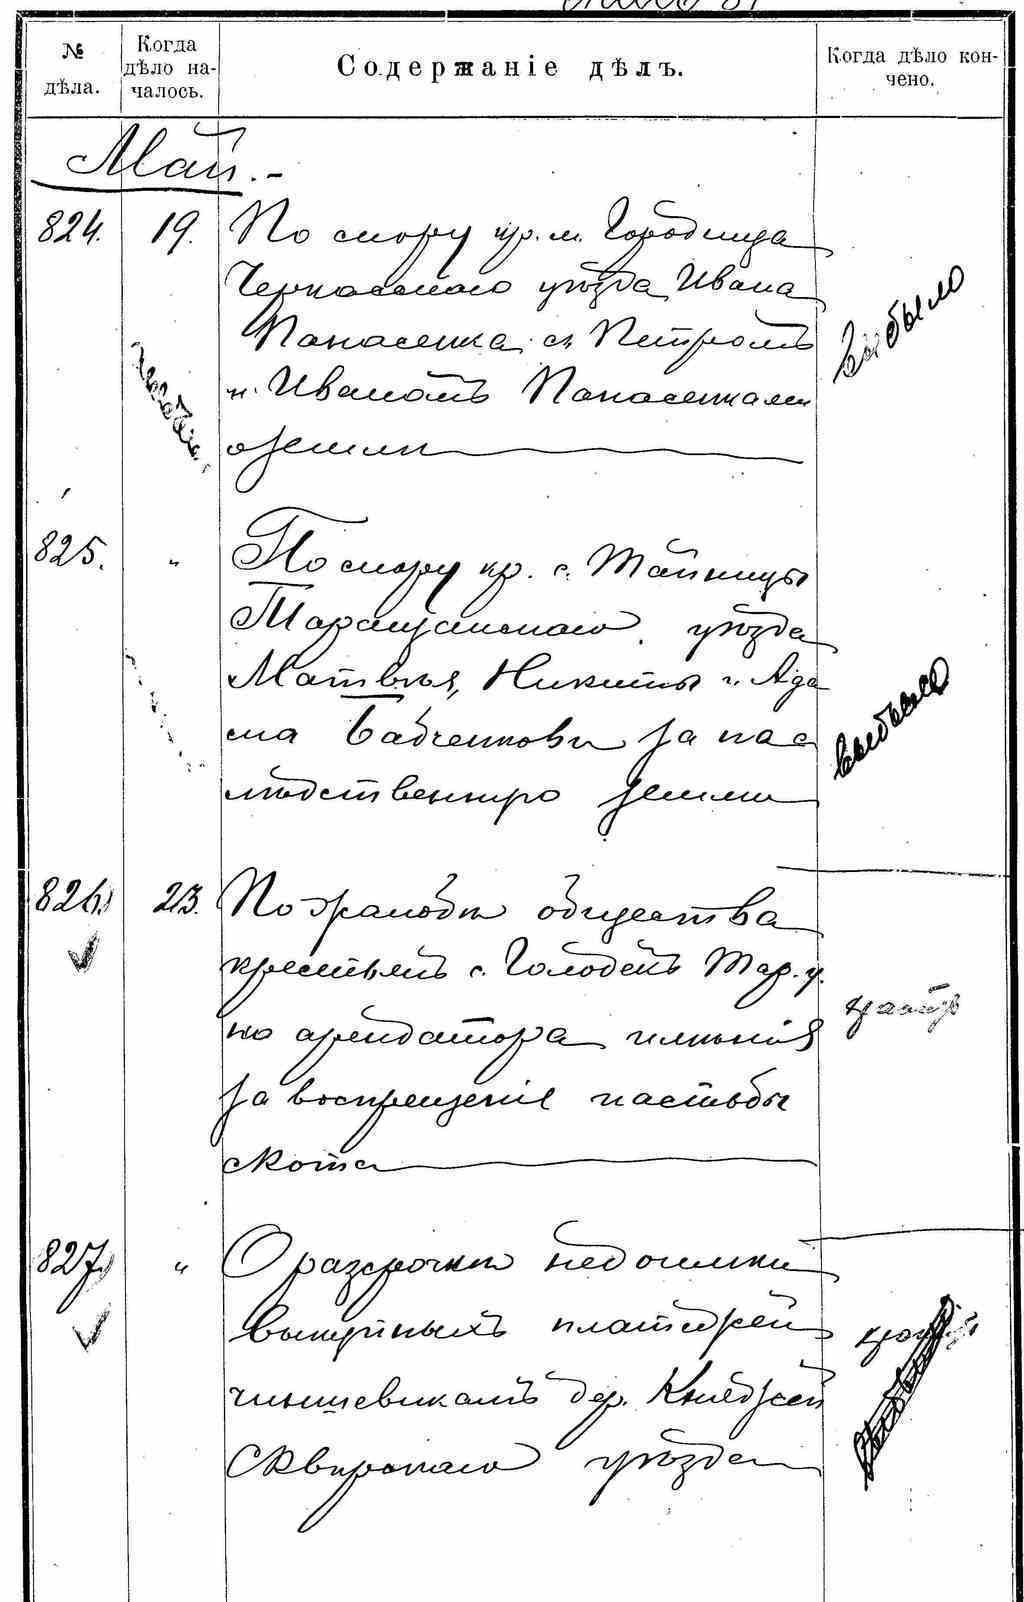 № дѣла.
Когда дѣло на-
чалось.
Содержаніе дѣлъ.
Когда дѣло кон-
чено.
Май.-
824. 19. По спору кр. м. Городища
Черкасскаго уѣзда Ивана
Панасенка съ Петромъ
и Иваномъ Панасенками
о земли
выбыло
825. " По спору кр. с. Тайницы
Таращанскаго уѣзда
Матвѣя, Никиты и Ада
ма Бабченковы за нас
лѣдственную землю
выбыло
826. 23. По жалобѣ общества
крестьянъ с. Голодекъ Тар. у.
на арендатора имѣнія
за воспрещеніе пастьбы
скота
827. " О разсрочкѣ недоимки
выкупныхъ платежей
чиншевикамъ дер.
Сквирскаго уѣзда